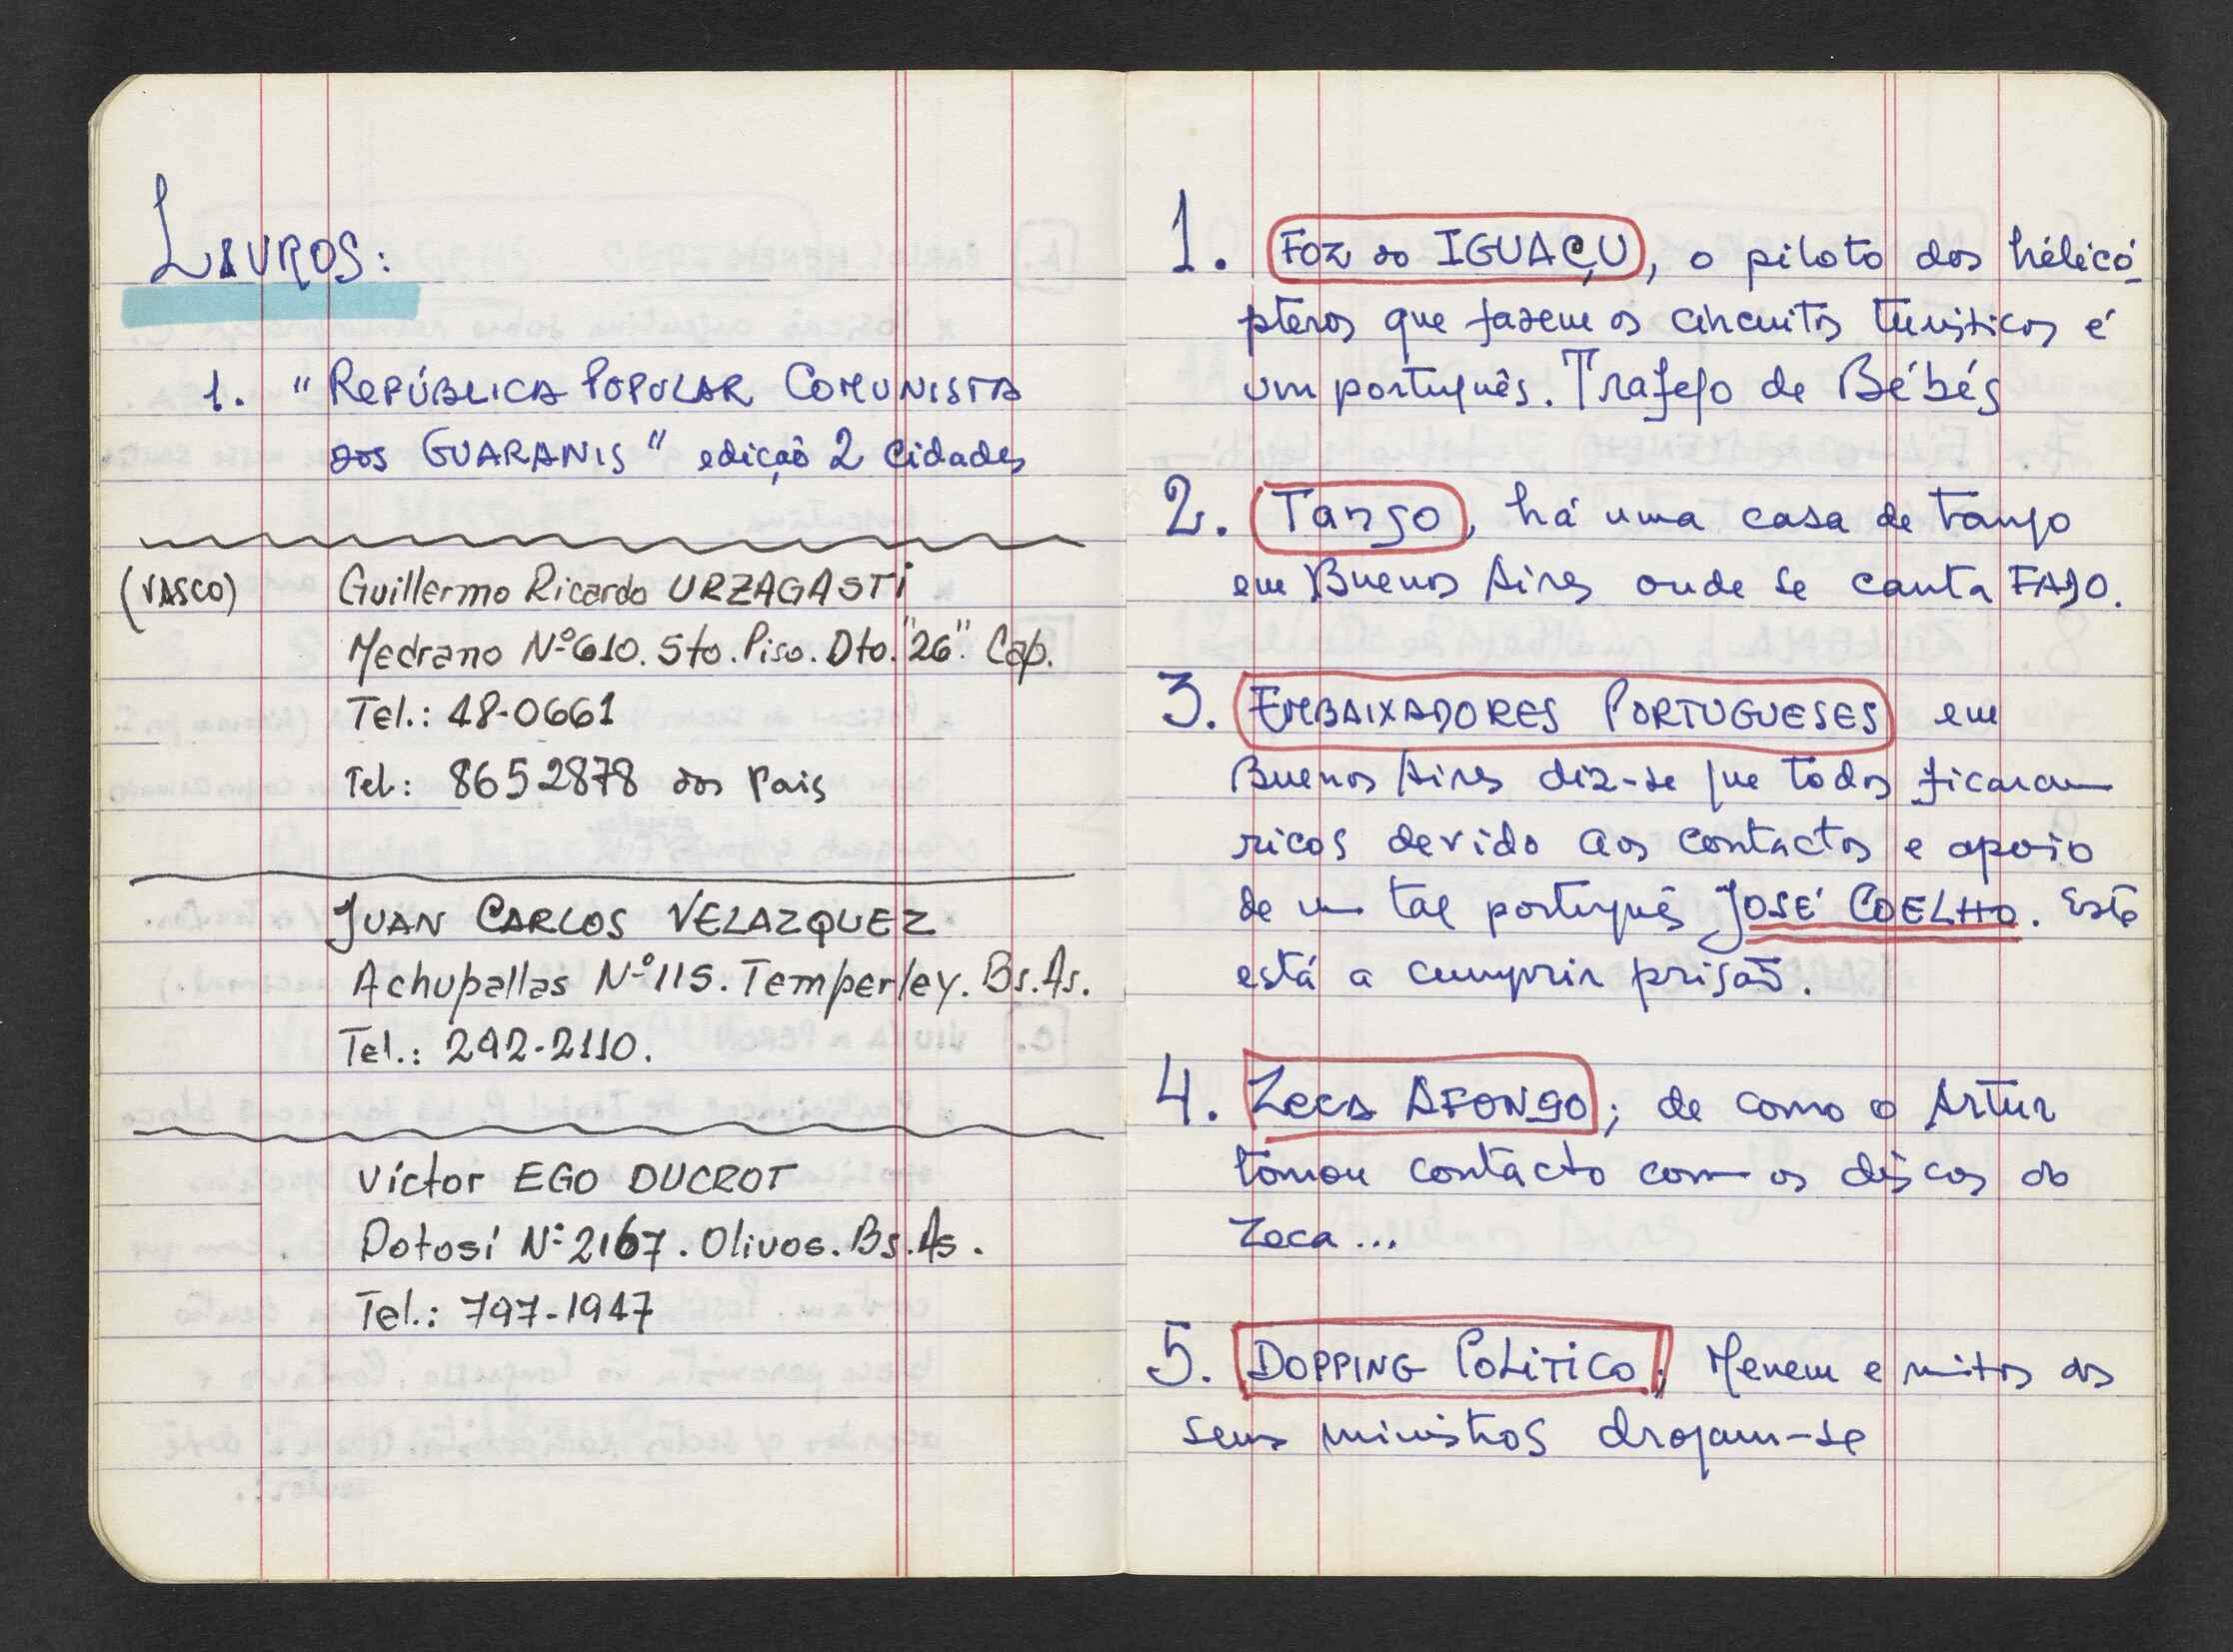 LIVROS:
1. "REPÚBLICA POPULAR COMUNISTA
dos GUARANIS" edição 2 Cidades
(VASCO) Guillermo Ricardo URZAGASTI
Medrano Nº610. 5to. Piso. Dto. "26". Cap.
Tel.: 48-0661
Tel: 8652878 dos Pais
JUAN CARLOS VELAZQUEZ
Achupallas Nº115. Temperley. Bs.As.
Tel.: 292-2110.
Víctor EGO DUCROT
Potosí Nº 2167. Olivos. Bs.As.
Tel.: 797-1947
1. FOZ do IGUAÇU, o piloto dos hélicó-
pteros que fazem os circuitos turísticos é
um português. Trafego de Bébés
2. Tango, há uma casa de tango
em Buenos Aires onde se canta FADO.
3. EMBAIXADORES PORTUGUESES em
Buenos Aires diz-se que todos ficaram
ricos devido aos contactos e apoio
de um tal português JOSÉ COELHO. Este
está a cumprir prisão.
4. ZECA AFONSO; de como o Artur
tomou contacto com os discos do
Zeca...
5. DOPPING POLITICO; Menem e muitos dos
seus ministros drogam-se